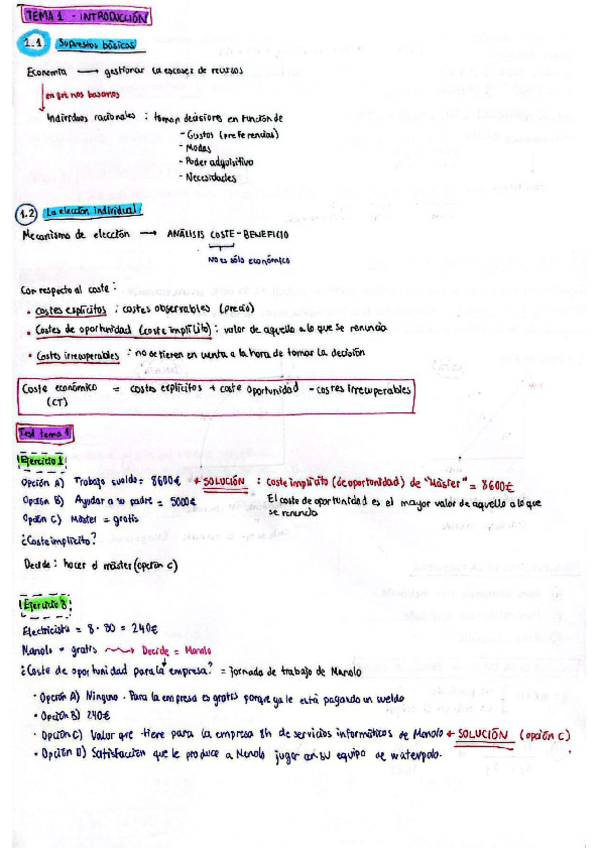 TEMA 1 - INTRODUCCIÓN
1.1 Supuestos básicos
Economía → gestionar la escasez de recursos
en qué nos basamos
Individuos racionales : toman decisiones en función de
- Gustos (preferencias)
- Modas
- Poder adquisitivo
- Necesidades
1.2 La elección individual
Mecanismo de elección → ANÁLISIS COSTE - BENEFICIO
NO es sólo económico
Con respecto al coste :
• Costes explícitos : costes observables (precio)
• Costes de oportunidad (coste implícito) : valor de aquello a lo que se renuncia
• Costes irrecuperables : no se tienen en venta a la hora de tomar la decisión
Coste económico = costes explícitos + coste oportunidad - costes irrecuperables
(CT)
Test tema 1
Ejercicio 1
Opción A) Trabajo sueldo = 8600€ ← SOLUCIÓN : coste implícito (de oportunidad) de "Máster" = 8600€
Opción B) Ayudar a su padre = 5000€ El coste de oportunidad es el mayor valor de aquello a lo que
Opción C) Máster = gratis se renuncia
¿Coste implícito?
Decide : hacer el máster (opción C)
Ejercicio 3
Electricista = 8 · 30 = 240€
Manolo = gratis → Decide = Manolo
¿Coste de oportunidad para la empresa? = jornada de trabajo de Manolo
• Opción A) Ninguno. Para la empresa es gratis porque ya le está pagando un sueldo
• Opción B) 240€
• Opción C) Valor que tiene para la empresa 8h de servicios informáticos de Manolo ← SOLUCIÓN (opción C)
• Opción D) Satisfacción que le produce a Manolo jugar con su equipo de waterpolo.